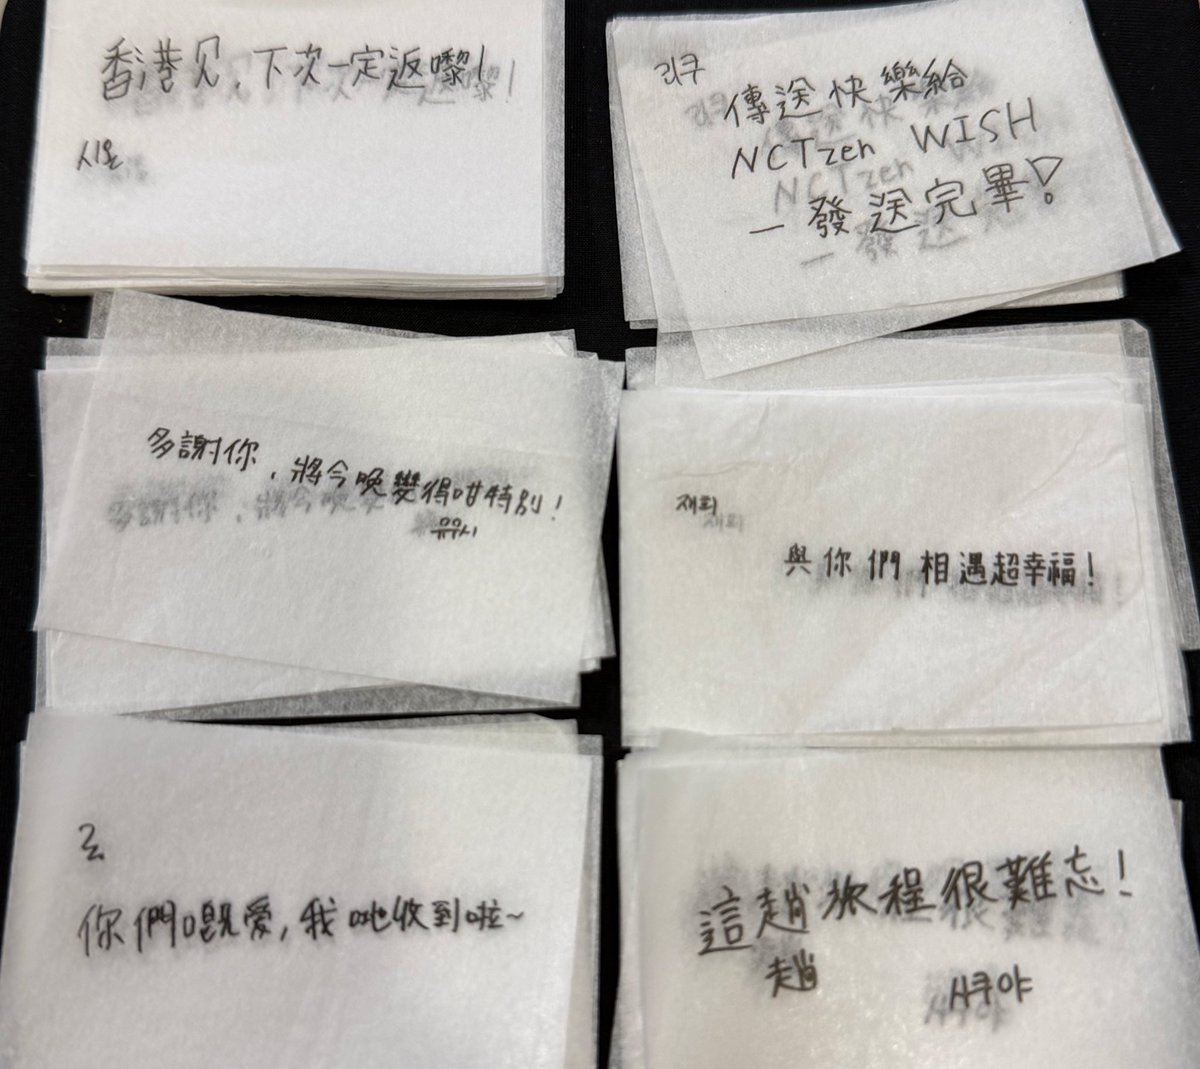 香港见，下次一定返嚟！
시온
리쿠
傳送快樂給
NCTzen WISH
一發送完畢！
多謝你，將今晚變得咁特別！
유우시
재희
與你們相遇超幸福！
료
你們嘅愛，我哋收到啦~
這趟旅程很難忘！
趟
사쿠야